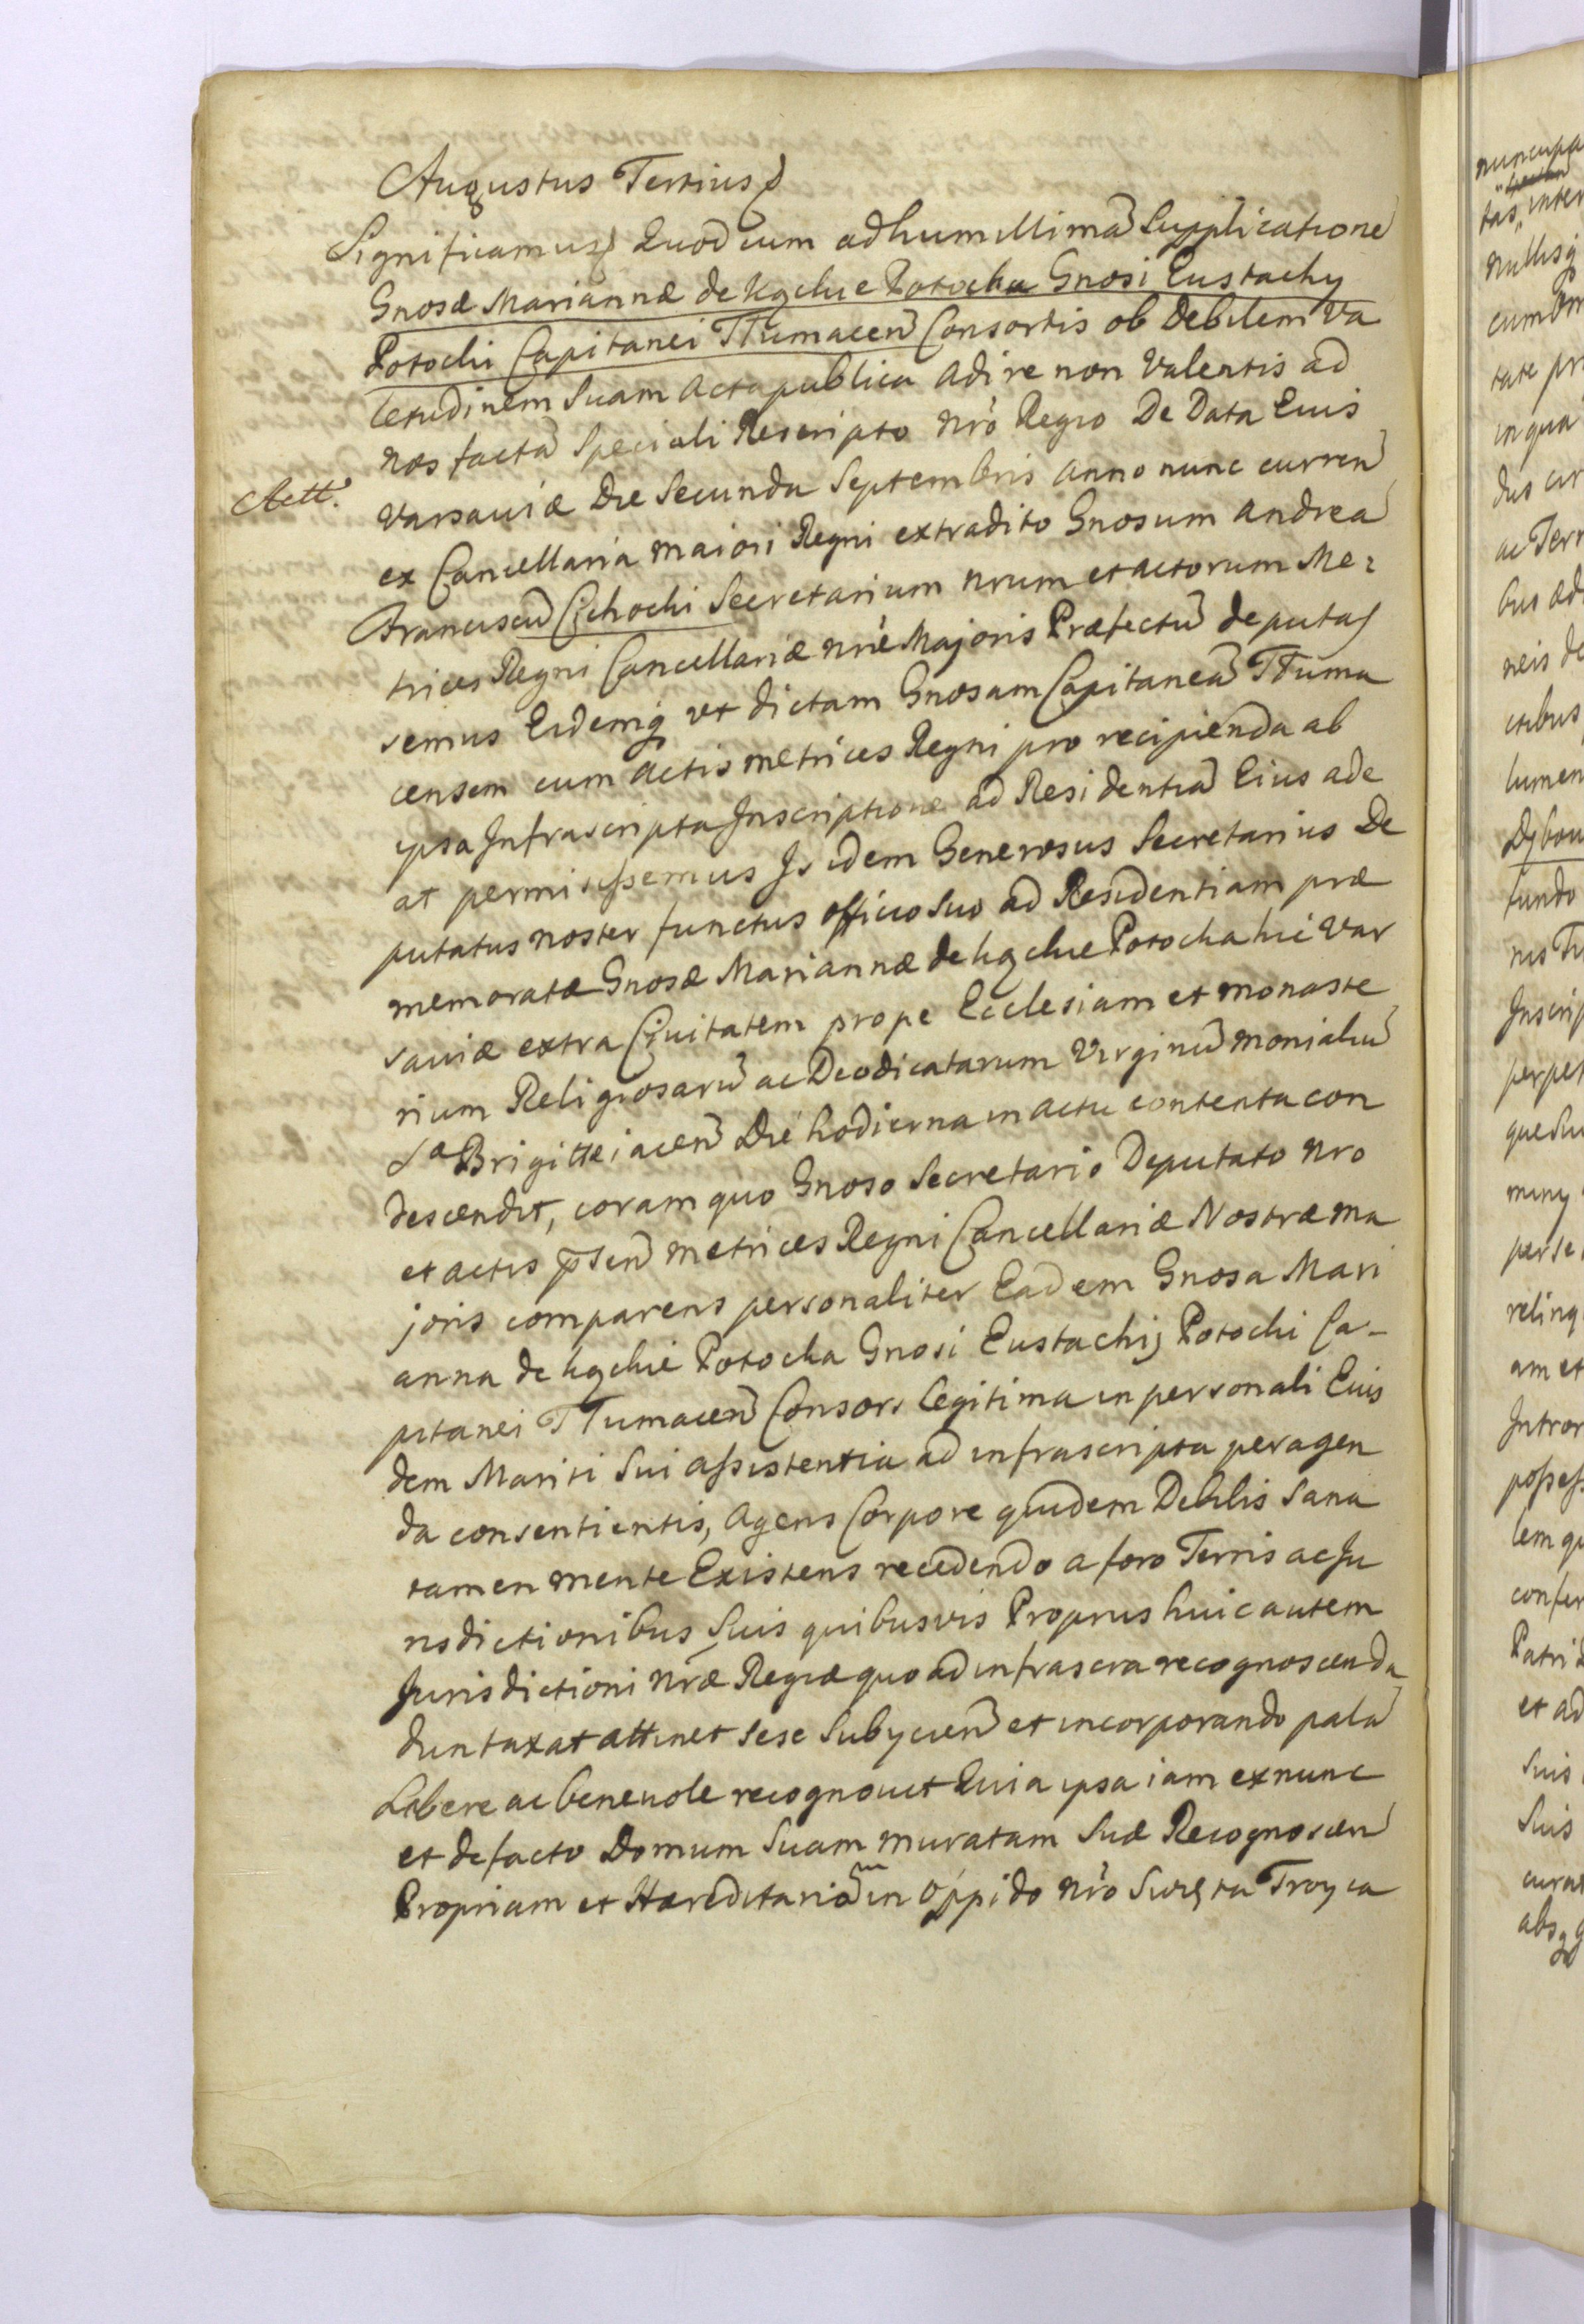 Augustus Tertius
Significamus Quod cum ad humillimã Supplicatione
Gnosæ Mariannæ de Kąckie Potocka Gnosi Eustachy
Potocki Capitanei Tłumacen Consortis ob Debilem Va
letudinem Suam Acta publica Adire non Valentis ad
nos factã Speciali Rescripto nrõ Regio De Data Eius
Act.
Varsaviæ Die Secunda Septembris Anno nunc curren
ex Cancellaria Maiori Regni extradito Gnosum Andreã
Franciscũ Cichocki Secretarium nrum et Actorum Me:
trices Regni Cancellariæ nrẽ Majoris Præfectũ deputas
semus Eidemq ut dictam Gnosam Capitaneã Tłuma
censem cum Actis Metrices Regni pro recipienda ab
ipsa Infrascripta Inscriptione ad Residentiã Eius ade
at permisissemus Is idem Generosus Secretarius De
putatus noster functus officio Suo ad Residentiam præ
memoratæ Gnosæ Mariannæ de Kąckie Potocka hic Var
saviæ extra Civitatem prope Ecclesiam et Monaste
rium Religiosarũ ac Deodicatarum Virginũ Monialiũ
Sa Brigitte iacen Die hodierna in actu contenta con
descendit, coram quo Gnoso Secretario Deputato nro
et actis psen Metrices Regni Cancellariæ Nostræ Ma
joris comparens personaliter Eadem Gnosa Mari
anna de Kąckie Potocka Gnosi Eustachij Potocki Ca-
pitanei Tłumacen Consors legitima in personali Eius
dem Mariti Sui assistentia ad infrascripta peragen
da consentientis, Agens Corpore quidem Debilis Sana
tamen mente Existens recedendo a foro Terris ac Ju
risdictionibus Suis quibusvis Proprus huic autem
Jurisdictioni nræ Regiæ quo ad infrascra recognoscenda
duntaxat attinet sese Subycien et incorporando palã
Libere ac benevole recognovit Quia ipsa iam ex nunc
et de facto Domum Suam muratam Suæ Recognoscen
Propriam et Hæreditariãm in Oppido nrõ Swięta Troyca
nuncupa
tas, inter
nullisq
cum
tate pr
in qua
dus cir
ac Terr
bus æd
neis de
ctibus
lumen
Dybow
fundo
nis
Inscrip
perpet
que su
perse
relinq
am et
Intror
possess
lem qu
confer
Patri
et ad
Suis
Suis
curat
absq